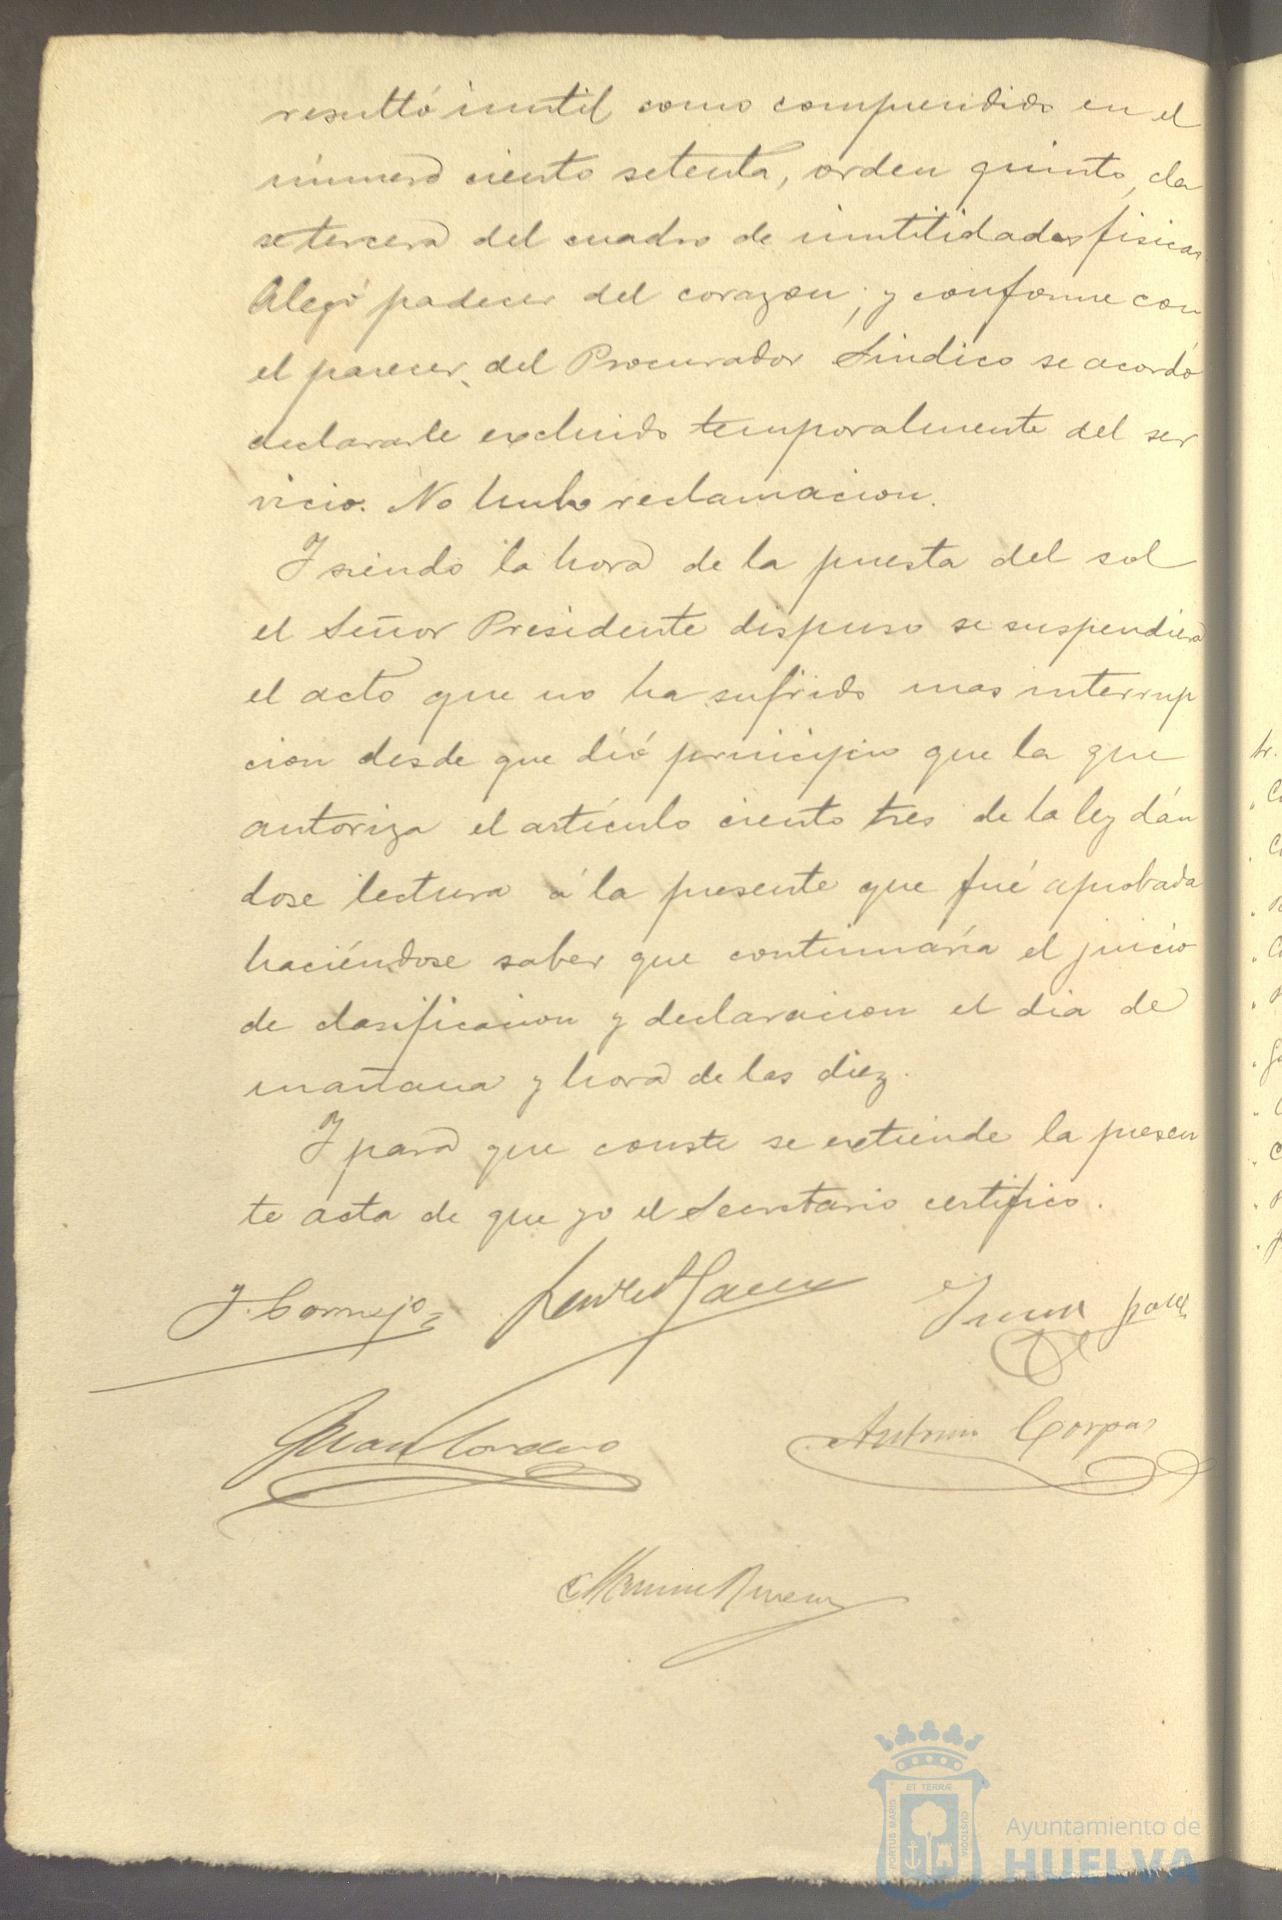 resultó inutil como comprendido en el
número ciento setenta, orden quinto, cla
se tercera del cuadro de inutilidades fisicas
Alegó padecer del corazon; y conforme con
el parecer del Procurador Sindico se acordó
declararle excluido temporalmente del ser
vicio. No hubo reclamacion.
Y siendo la hora de la puesta del sol
el Señor Presidente dispuso se suspendiera
el acto que no ha sufrido mas interrup
cion desde que dió principio que la que
autoriza el artículo ciento tres de la ley dán
dose lectura á la presente que fué aprobada
haciéndose saber que continuaría el juicio
de clasificacion y declaracion el dia de
mañana y hora de las diez.
Y para que conste se extiende la presen
te acta de que yo el Secretario certifico.
J. Cornejo
Juan Cordero
Antonio Corpas
ET TERRÆ
PORTUS MARIS
CUSTODIA
Ayuntamiento de
HUELVA